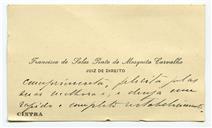 Francisco de Salles Pinto de Mesquita Carvalho
JUIZ DE DIREITO
cumprimenta, felicita pelas
suas melhoras, e deseja um
rapido e completo restabelecimento.
CINTRA